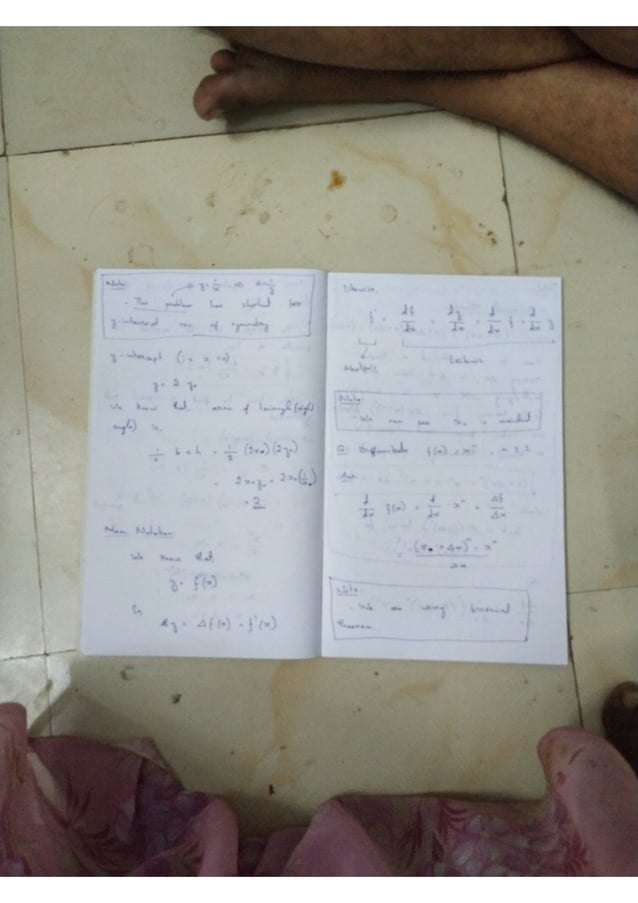 Note:
y = 1/x => x = 1/y
- This problem has shortcut for
y-intercept of symmetry
y-intercept (i.e x = 0),
y = 2 y₀
We know that, area of triangle (right
angle) is,
1/2 b × h = 1/2 (2x₀) (2y₀)
= 2x₀y₀ = 2x₀(1/x₀)
= 2
More Notation
We know that,
y = f(x)
So,
Δy = Δf(x) = f'(x)
Likewise,
f' = df/dx = dy/dx = d/dx f = d/dx y
Newton's
Leibniz
Note:
- We can see x₀ is
Q: Differentiate f(x) = xⁿ, n = 1, 2, 3
d/dx f(x) = d/dx xⁿ = Δf/Δx
= ((x₀ + Δx)ⁿ - xⁿ)/Δx
Note:
- We are using binomial
theorem.